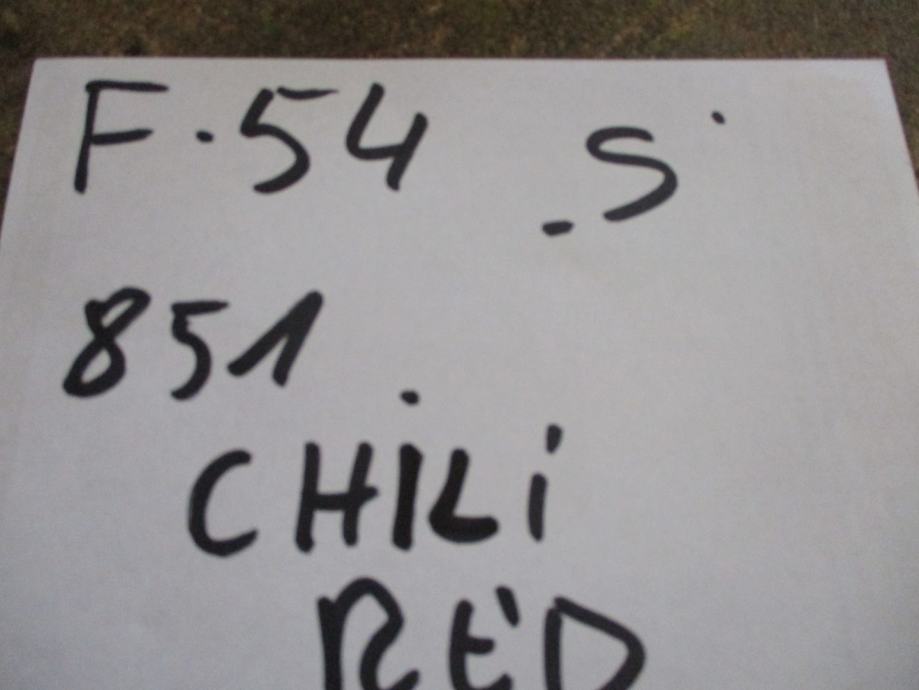 F.54 S
851
CHiLi
RED